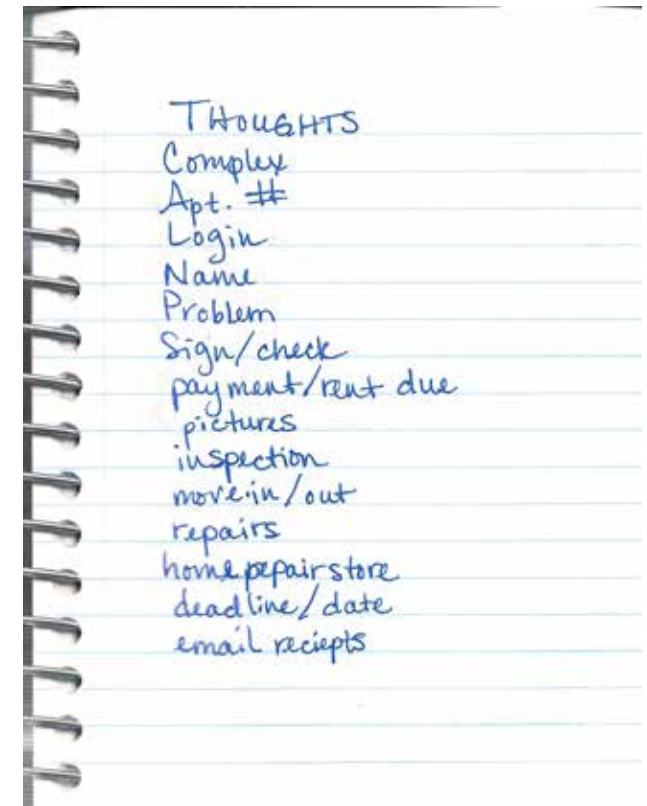 THOUGHTS
Complex
Apt. #
Login
Name
Problem
Sign/check
payment/rent due
pictures
inspection
move-in/out
repairs
home pepair store
deadline/date
email reciepts